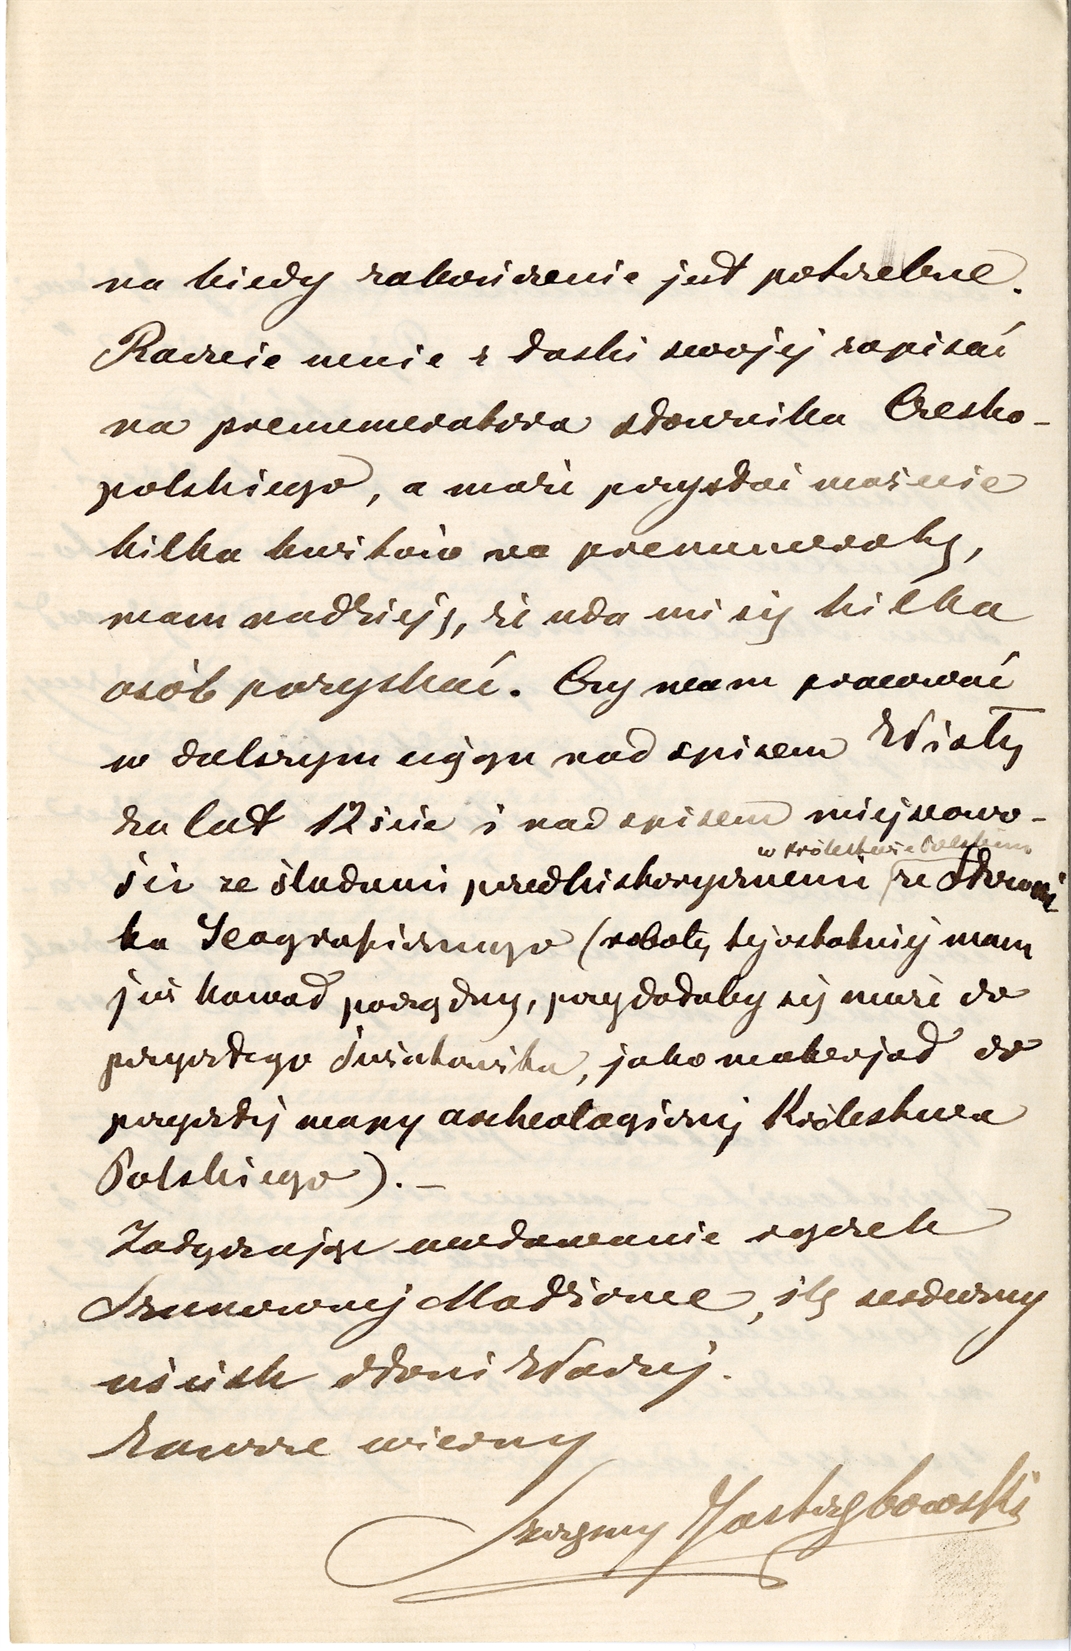 na kiedy zakończenie jest potrzebne.
Raczcie mnie z łaski swojej zapisać
na prenumeratora słownika Czesko-
polskiego, a może przysłać możecie
kilka kwitów na prenumeratę,
mam nadzieję, że uda mi się kilka
osób pozyskać. Czy mam pracować
w dalszym ciągu nad spisem Wisły
za lat 12ście i nad spisem miejscowo-
ści ze śladami przedhistorycznemi w Królestwie Polskiem ze Słowni
ka Geograficznego (roboty tej ostatniej mam
już kawał porządny, przydałaby się może do
przyszłego Światowita, jako materjał do
przyszłej mapy archeologicznej Królestwa
Polskiego). –
Załączając ucałowanie rączek
Szanownej Małżonce, ślę serdeczny
uścisk dłoni Waszej.
Zawsze wierny
Szczęsny Jastrzębowski